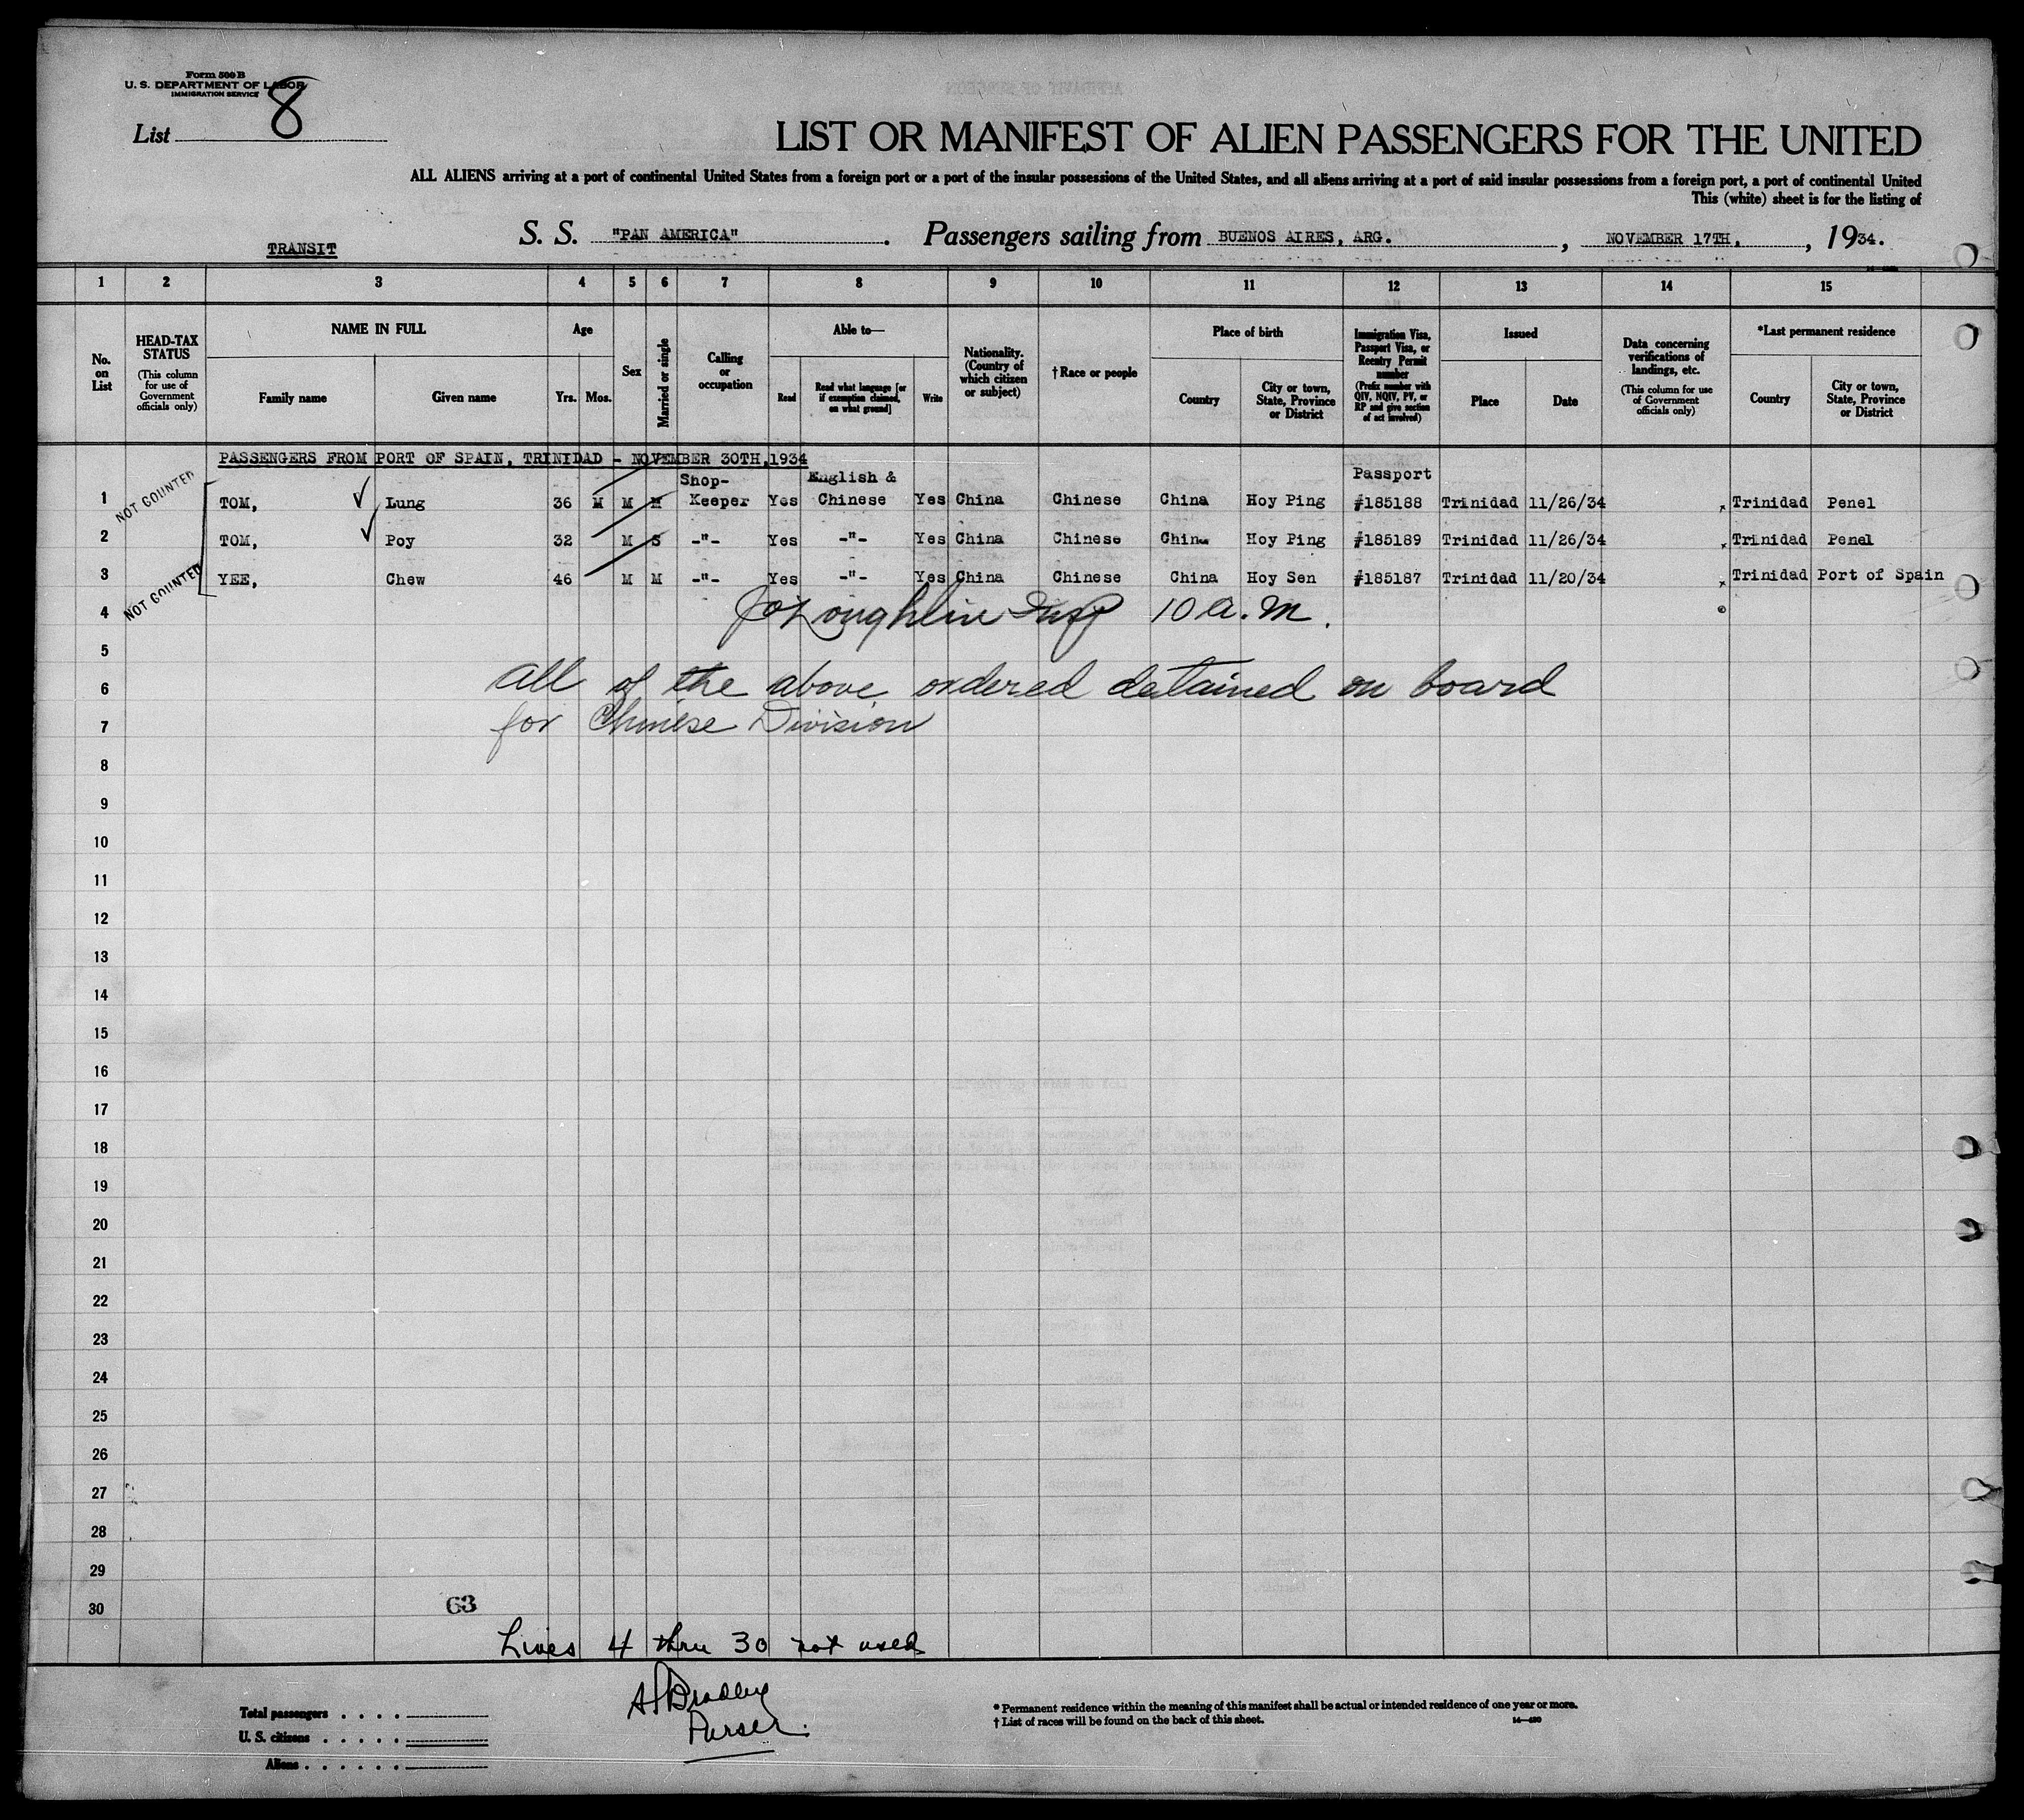 Form 500 B
U. S. DEPARTMENT OF LABOR
IMMIGRATION SERVICE
List 8
LIST OR MANIFEST OF ALIEN PASSENGERS FOR THE UNITED
ALL ALIENS arriving at a port of continental United States from a foreign port or a port of the insular possessions of the United States, and all aliens arriving at a port of said insular possessions from a foreign port, a port of continental United
This (white) sheet is for the listing of
TRANSIT S. S. "PAN AMERICA". Passengers sailing from BUENOS AIRES, ARG., NOVEMBER 17TH, , 1934.
1 2 3 4 5 6 7 8 9 10 11 12 13 14 15
No. on List
HEAD-TAX STATUS
(This column for use of Government officials only)
NAME IN FULL
Family name Given name
Age
Yrs. Mos.
Sex
Married or single
Calling or occupation
Able to—
Read
Read what language [or if exemption claimed, on what ground]
Write
Nationality. (Country of which citizen or subject)
†Race or people
Place of birth
Country
City or town, State, Province or District
Immigration Visa, Passport Visa, or Reentry Permit number
(Prefix number with QIV, NQIV, PV, or RP and give section of act involved)
Issued
Place Date
Data concerning verifications of landings, etc.
(This column for use of Government officials only)
*Last permanent residence
Country
City or town, State, Province or District
PASSENGERS FROM PORT OF SPAIN, TRINIDAD - NOVEMBER 30TH,1934
NOT COUNTED
Shop- English & Passport
1 TOM, Lung 36 M M M Keeper Yes Chinese Yes China Chinese China Hoy Ping #185188 Trinidad 11/26/34 Trinidad Penel
2 TOM, Poy 32 M S -"- Yes -"- Yes China Chinese China Hoy Ping #185189 Trinidad 11/26/34 Trinidad Penel
3 YEE, Chew 46 M M -"- Yes -"- Yes China Chinese China Hoy Sen #185187 Trinidad 11/20/34 Trinidad Port of Spain
NOT COUNTED
4 J O'Loughlin Insp 10 a.m.
5
6 All of the above ordered detained on board
7 for Chinese Division
8
9
10
11
12
13
14
15
16
17
18
19
20
21
22
23
24
25
26
27
28
29
30
63
Lines 4 thru 30 not used
Bradley
Purser.
Total passengers . . . .
U. S. citizens . . . . .
Aliens . . . . . .
* Permanent residence within the meaning of this manifest shall be actual or intended residence of one year or more.
† List of races will be found on the back of this sheet.
14—480